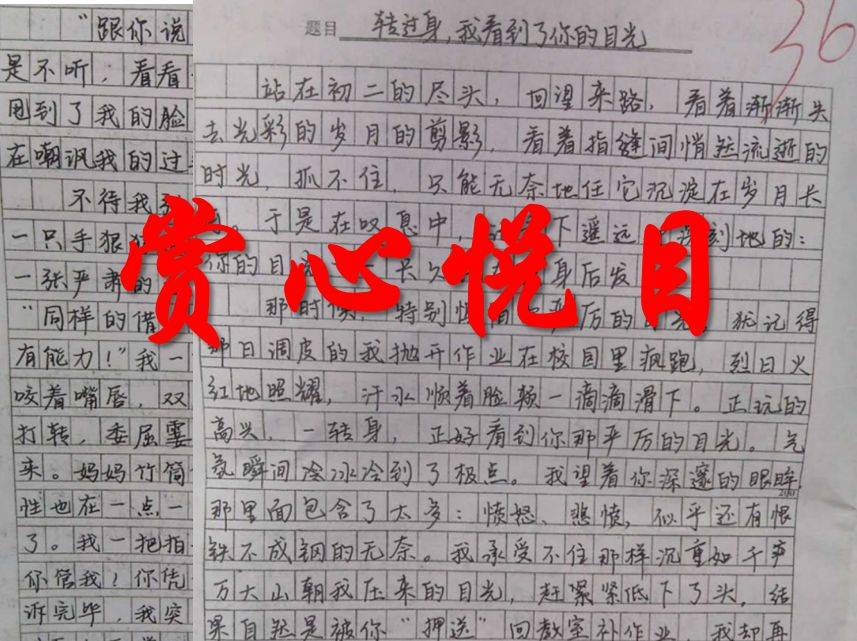 "跟你说
是不听，看看
甩到了我的脸
在嘲讽我的过
不待我
一只手狠
一张严肃的
"同样的借
有能力！"我一
咬着嘴唇，双
打转，委屈霎
来。妈妈竹筒
性也在一点一
了。我一把拍
你管我！你凭
诉完毕，我突
题目 转过身，我看到了你的目光
36
站在初二的尽头，回望来路，看着渐渐失
去光彩的岁月的剪影，看着指缝间悄然流逝的
时光，抓不住，只能无奈地任它沉淀在岁月长
于是在叹息中，下遥远深刻地的：
你的目长久身后发
那时候，特别惧厉的目光，犹记得
那日调皮的我抛开作业在校园里疯跑，烈日火
红地照耀，汗水顺着脸颊一滴滴滑下。正玩的
高兴，一转身，正好看到你那严厉的目光。气
氛瞬间冷冰冷到了极点。我望着你深邃的眼眸，
那里面包含了太多：愤怒、悲愤，似乎还有恨
铁不成钢的无奈。我承受不住那样沉重如千声
万大山朝我压来的目光，赶紧紧低下了头。结
果自然是被你"押送"回教室补作业，我却再
赏心悦目